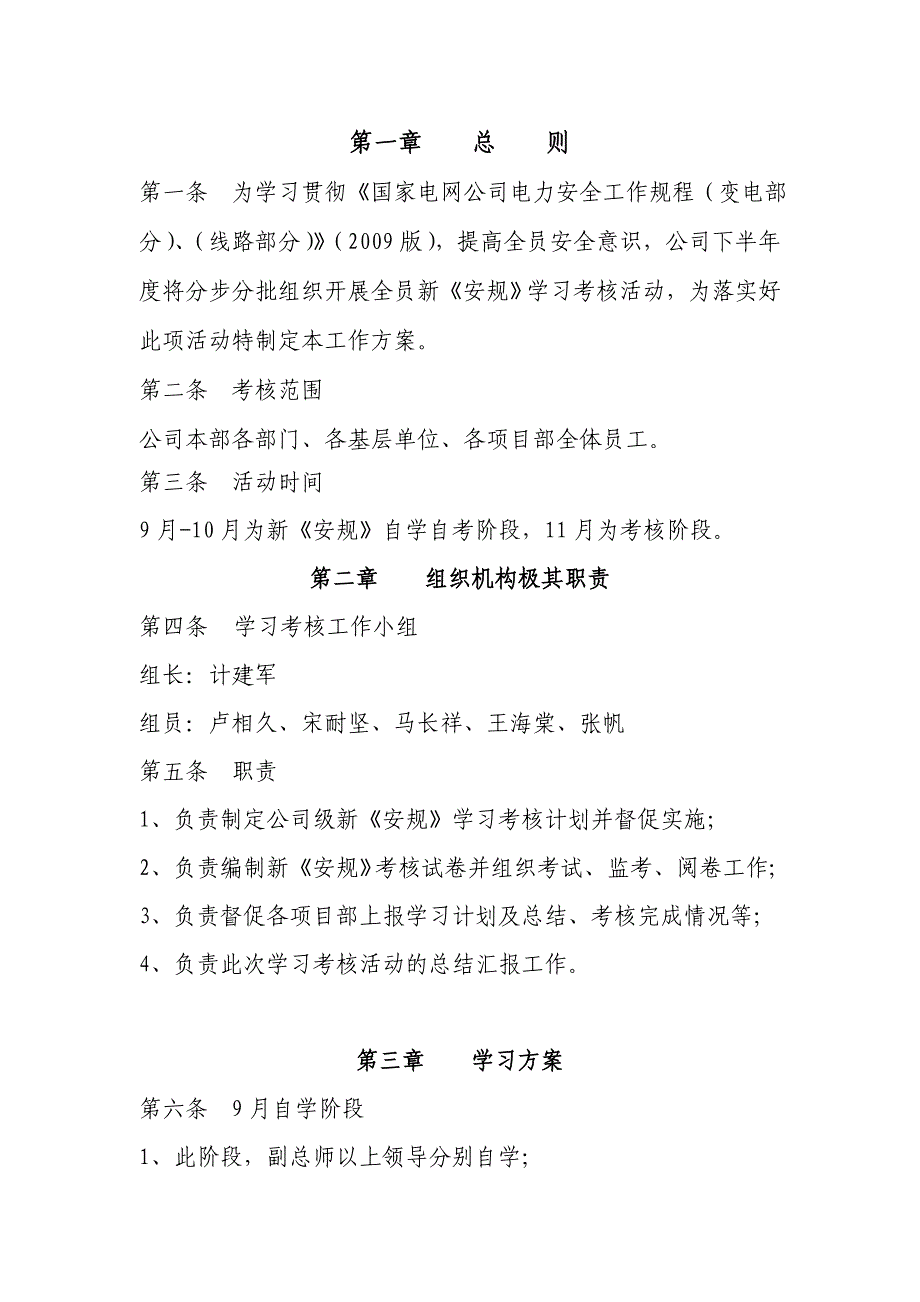 第一章　　总　　则
第一条　为学习贯彻《国家电网公司电力安全工作规程（变电部
分）、（线路部分）》（2009 版），提高全员安全意识，公司下半年
度将分步分批组织开展全员新《安规》学习考核活动，为落实好
此项活动特制定本工作方案。
第二条　考核范围
公司本部各部门、各基层单位、各项目部全体员工。
第三条　活动时间
9 月-10 月为新《安规》自学自考阶段，11 月为考核阶段。
第二章　　组织机构极其职责
第四条　学习考核工作小组
组长：计建军
组员：卢相久、宋耐坚、马长祥、王海棠、张帆
第五条　职责
1、负责制定公司级新《安规》学习考核计划并督促实施；
2、负责编制新《安规》考核试卷并组织考试、监考、阅卷工作；
3、负责督促各项目部上报学习计划及总结、考核完成情况等；
4、负责此次学习考核活动的总结汇报工作。
第三章　　学习方案
第六条　9 月自学阶段
1、此阶段，副总师以上领导分别自学；